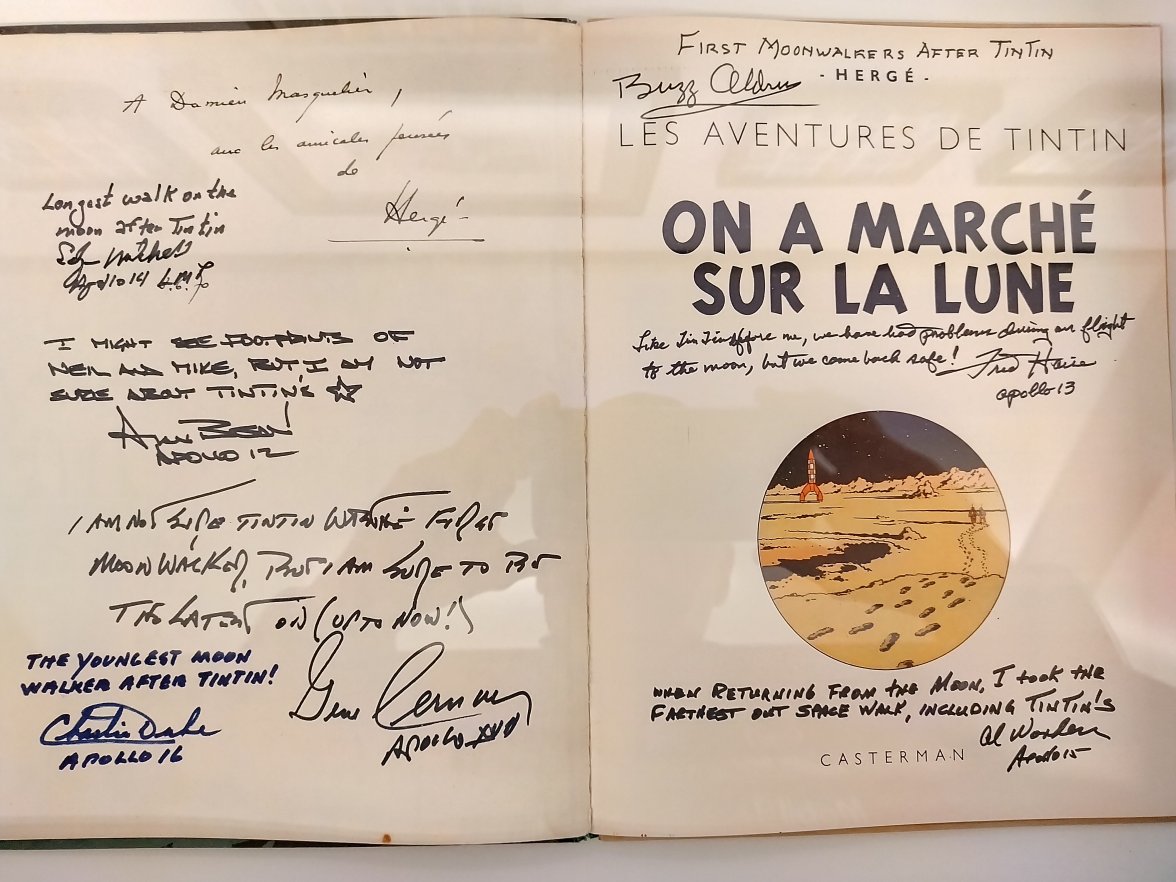 A Damien Masquelier,
avec les amicales pensées
de
Hergé
Longest walk on the
moon after Tintin
Edgar Mitchell
Apollo 14 LMP
I MIGHT SEE FOOTPRINTS OF
NEIL AND MIKE, BUT I AM NOT
SURE ABOUT TINTIN'S
APOLLO 12
I AM NOT SURE TINTIN WAS THE FIRST
MOONWALKER, BUT I AM SURE TO BE
THE LATEST ON (UP TO NOW!)
Gene Cernan
APOLLO XVII
THE YOUNGEST MOON
WALKER AFTER TINTIN!
Charlie Duke
APOLLO 16
FIRST MOONWALKERS AFTER TINTIN
Buzz Aldrin
- HERGÉ -
LES AVENTURES DE TINTIN
ON A MARCHÉ
SUR LA LUNE
Like Tintin before me, we have had problems during our flight
to the moon, but we came back safe! Fred Haise
apollo 13
WHEN RETURNING FROM THE MOON, I TOOK THE
FARTHEST OUT SPACE WALK, INCLUDING TINTIN'S
Al Worden
Apollo 15
CASTERMAN